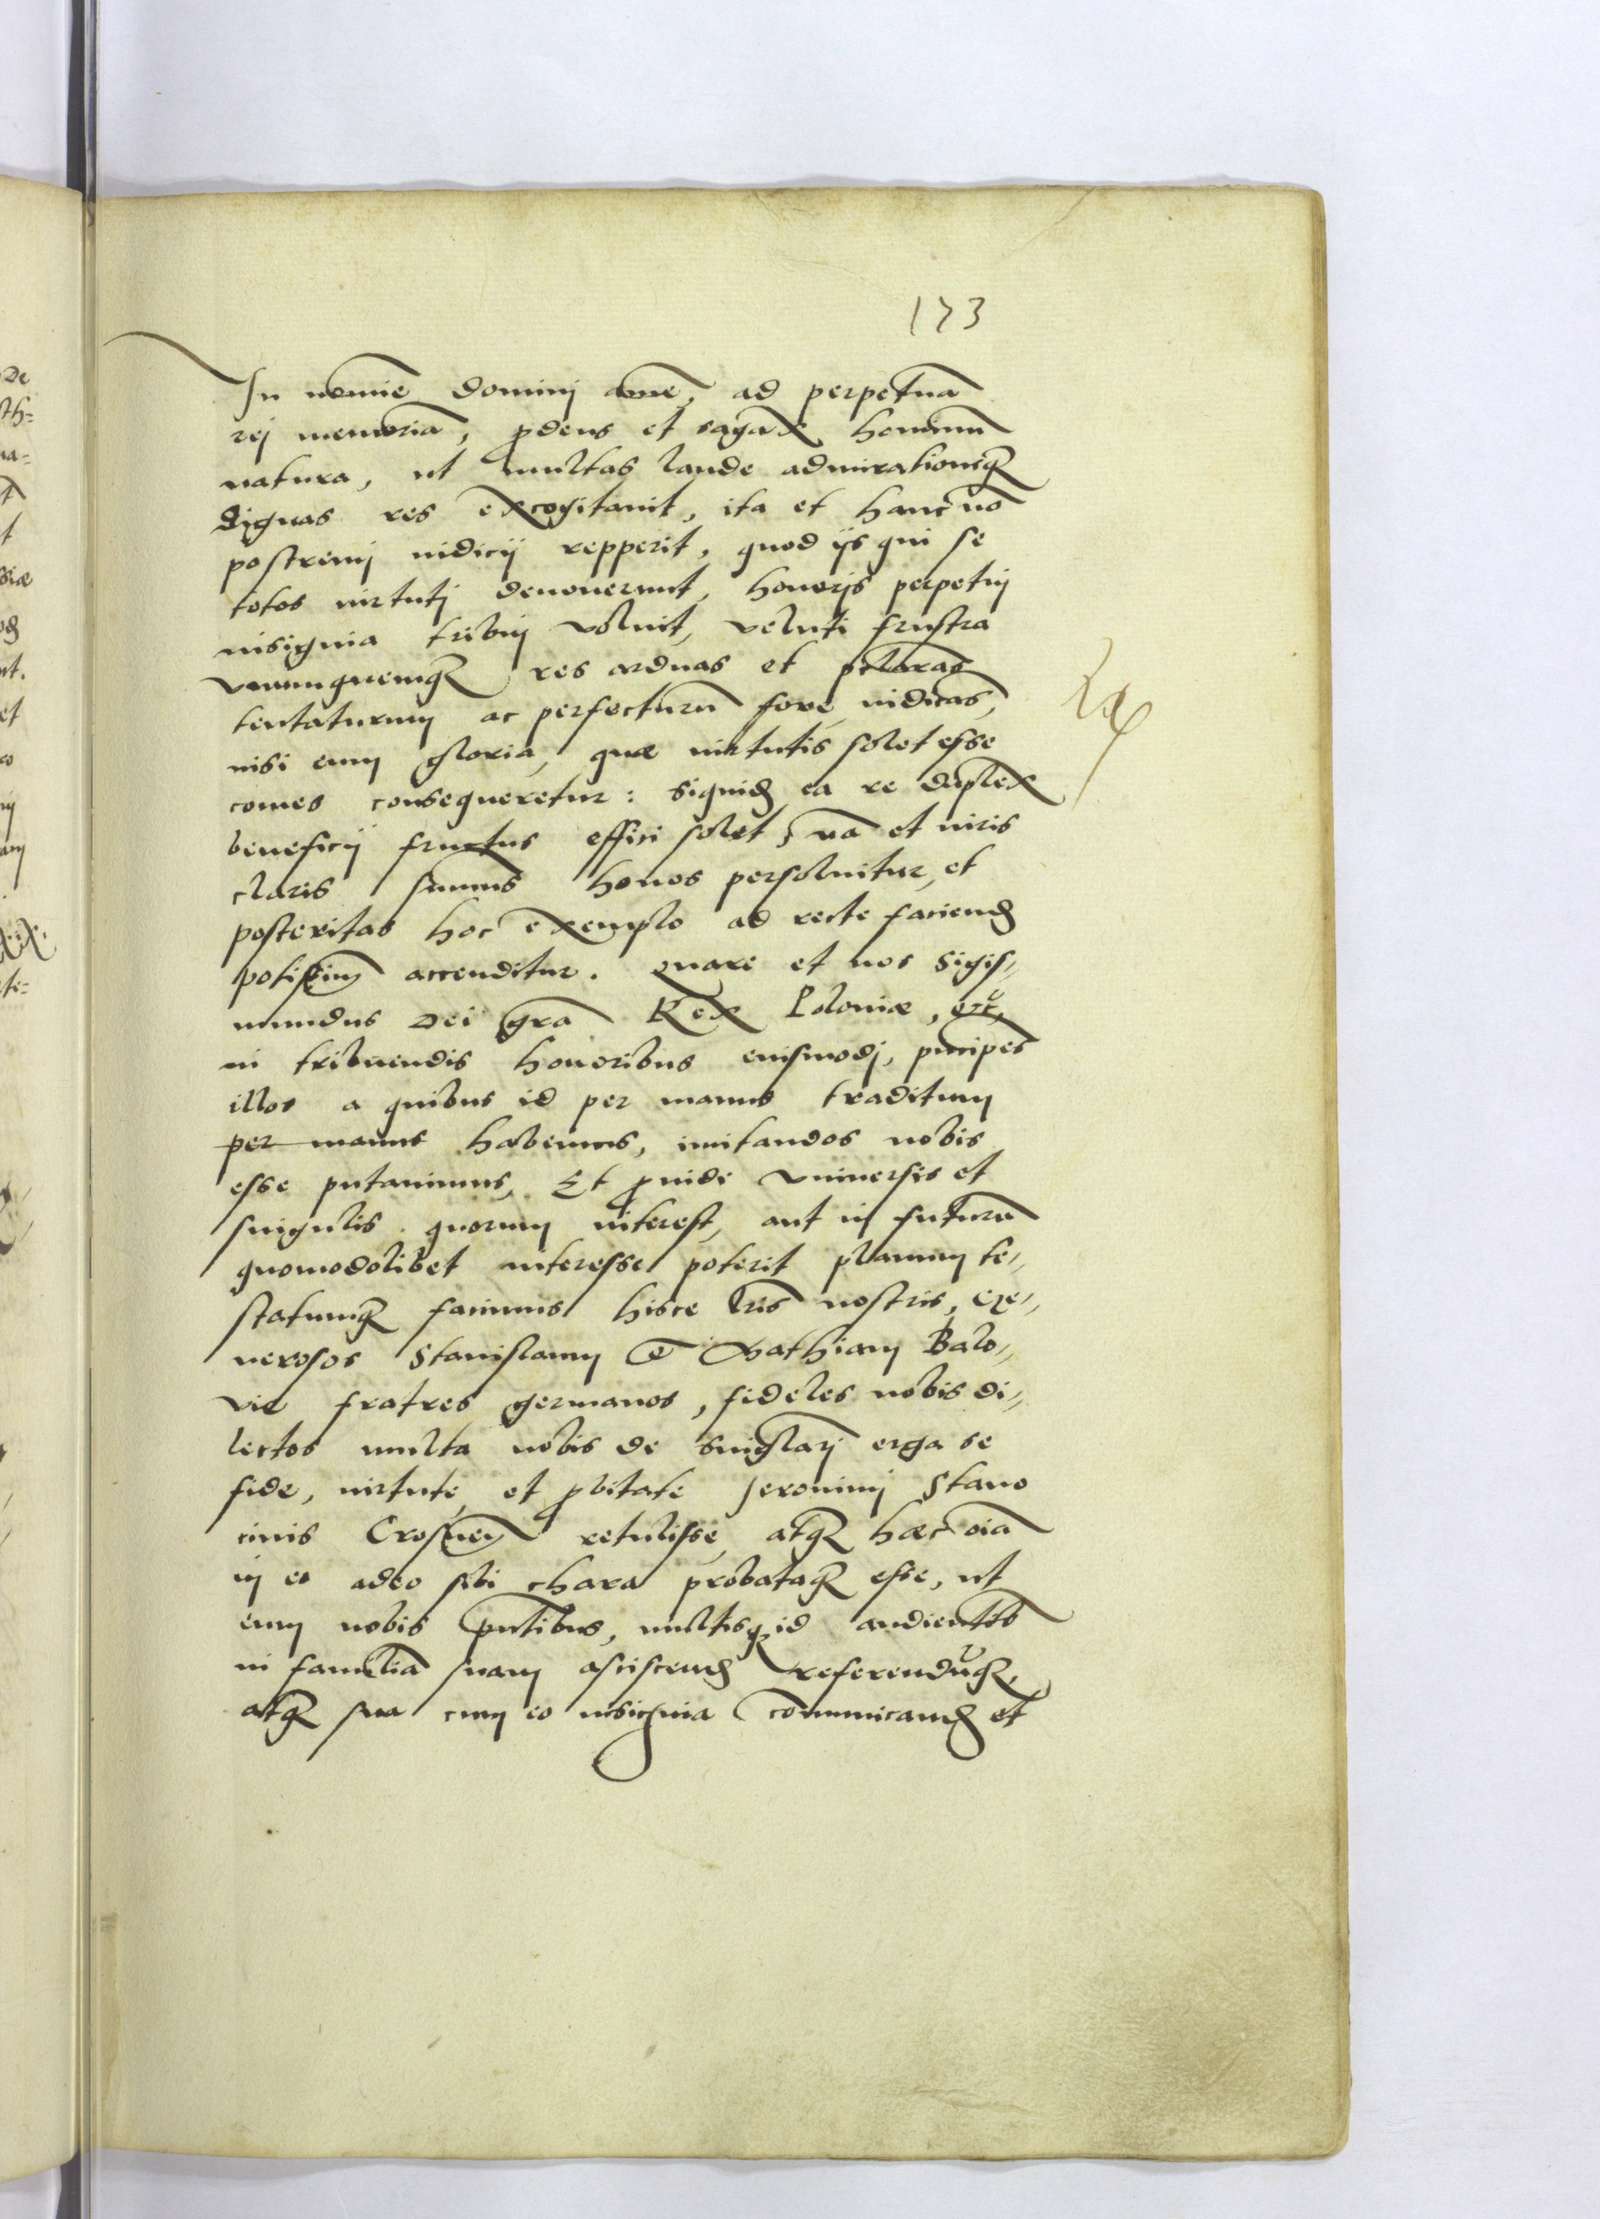 173
In nomie dominj ame, ad perpetuã
rej memoriã, prdens et sagax hominũ
natura, ut multas laude admirationeq
dignas res excogitauit, ita et hanc nõ
postremj iudicij repperit, quod ijs qui se
totos uirtutj deuouerunt, honoris perpetuj
insignia tribuj voluit, veluti frustra
vnumquemq res arduas et pclaras
tentaturum ac perfecturũ fore iudicãs,
nisi eum gloria, quæ uirtutis solet esse
comes consequeretur: siquid ea re duplex
beneficij fructus effici solet, nã et uiris
claris sumus honos persoluitur, et
posteritas hoc exemplo ad recte faciend
potissimũ accenditur. Quare et nos Sigis,,
mundus Dei grã Rex Poloniæ, etc,
in tribuendis honoribus eiusmodj, pncipes
illos a quibus id per manus traditum
per manus habemus, imitandos nobis
esse putauimus, Et proinde vniuersis et
singulis quorum interest, aut in futurũ
quomodolibet interesse poterit planum te,,
statumq facimus hisce lris nostris, Ge,,
nerosos Stanislaum et Mathiam Balo,,
vie fratres germanos, fideles nobis di,,
lectos multa nobis de singlarj erga se
fide, uirtute, et probitate Jeronimj Stano
ciuis Crosnen retulisse, atq hæc oiã
in eo adeo sibi chara probataq esse, ut
eum nobis pntibus, multisq id audientibs
in familiã suam asciscend referendũq,
atq sua cum eo insignia cõmunicand et